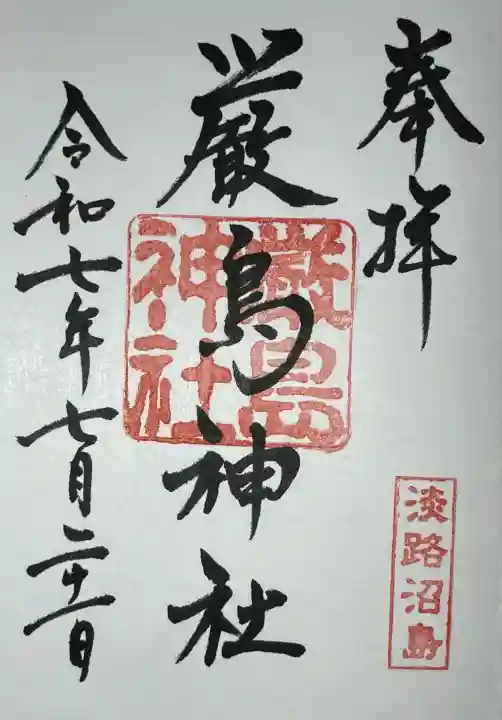 奉拝
厳島神社
厳島
神社
令和七年七月二十一日
淡路沼島